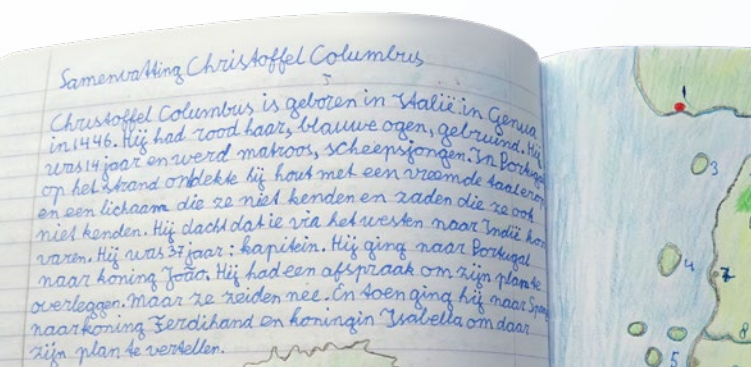 Samenvatting Christoffel Columbus
Christoffel Columbus is geboren in Italië: in Genua
in 1446. Hij had rood haar, blauwe ogen, gebruind. Hij
was 14 jaar en werd matroos, scheepsjongen. In Portugal
op het strand ontdekte hij hout met een vreemde taal erop
en een lichaam die ze niet kenden en zaden die ze ook
niet kenden. Hij dacht dat ie via het westen naar Indië kon
varen. Hij was 37 jaar: kapitein. Hij ging naar Portugal
naar koning João. Hij had een afspraak om zijn plan te
overleggen. Maar ze zeiden nee. En toen ging hij naar Spanje
naar koning Ferdihand en koningin Isabella om daar
zijn plan te vertellen.
1
3
4
7
8
5